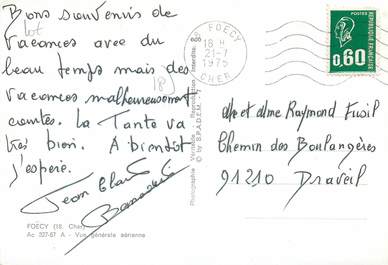 Bons souvenirs de
lot
vacances avec du
beau temps mais des
18)
vacances malheureusement
courtes. La Tante va
très bien. A bientôt
j'espère.
Jean Claude
FOECY (18. Cher)
Ac 327-67 A - Vue générale aérienne
Photographie Véritable - Reproduction Interdite
© by S.P.A.D.E.M.
FOECY
18 H
21-7
1975
CHER
POSTES
0,60
REPUBLIQUE FRANÇAISE
Mr et Mme Raymond Fusil
Chemin des Boulangères
91210 Draveil